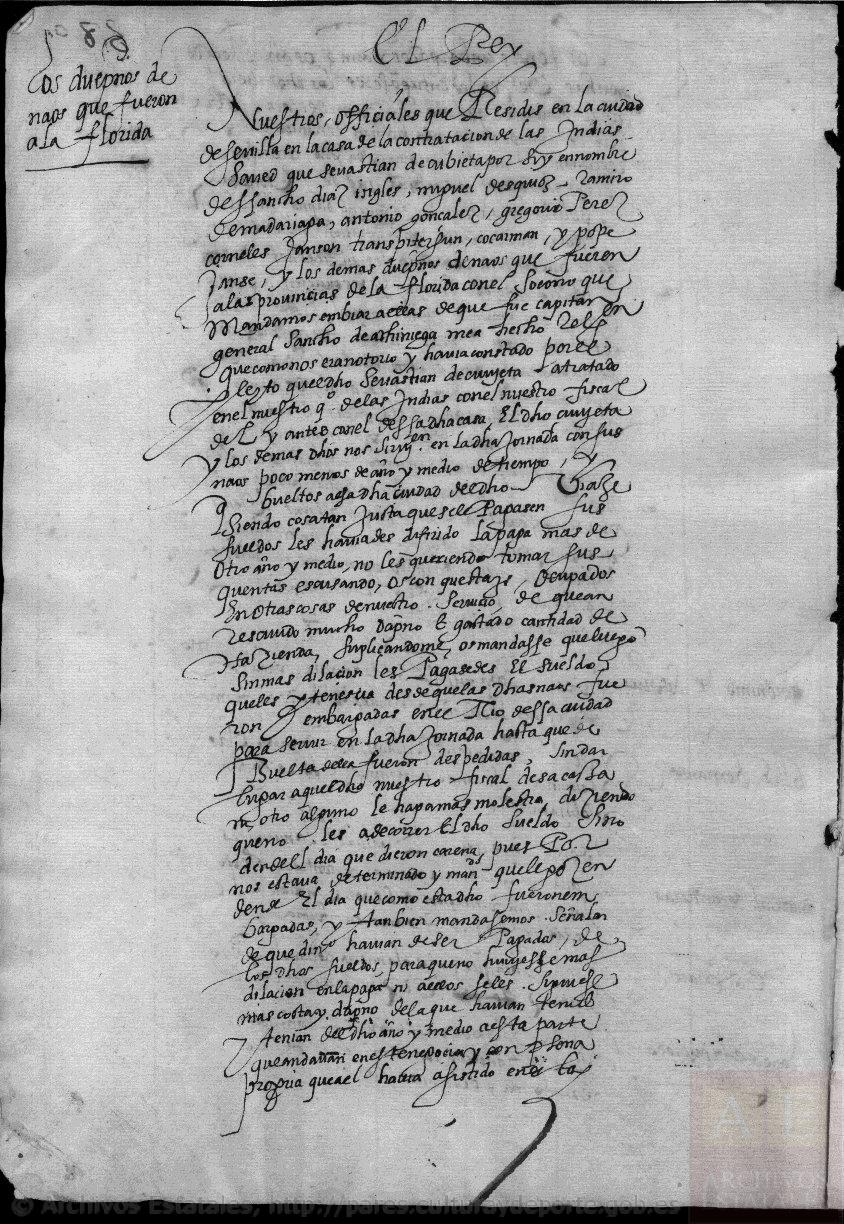 El Rey
Los duepnos de
naos que fueron
a la florida
Nuestros officiales que Residis en la ciudad
de sevilla en la casa de la contratacion de las Indias
Saued que sevastian de cubieta por sy y en nombre
de Sancho diaz ingles, miguel de Ramiro
de madariaga, antonio gonçalez, gregorio Perez
corneles Janson cocarman, y pope
Janse, y los demas duepnos de naos que fueron
a las provincias de la florida con el Socorro que
Mandamos embiar a ellas de que fue capitan
general Sancho de archiniega me a hecho Relon
que como nos era notorio y havia constado por el
pleyto quel dho Sevastian de cuvieta a tratado
en el nuestro qº de las Indias con el nuestro fiscal
del y antes con el dessa dha casa, El dho cuvieta
y los demas dhos nos sirvyeron en la dha Jornada con sus
naos poco menos de año y medio de tiempo, y
bueltos a esa dha ciudad del dho viaje
Siendo cosa tan Justa que se le Pagasen sus
sueldos les haviades diferido la paga mas de
otro año y medio, no les queriendo tomar sus
quentas escusando os con que estays ocupados
En otras cosas de nuestro Servicio, de que an
rescivido mucho dapno E gastado cantidad de
hazienda, Suplicandome os mandasse que luego
sin mas dilacion les Pagasedes El Sueldo
que les pertenescia desde que las dhas naos fue
ron embargadas en el Rio dessa ciudad
para servir en la dha Jornada hasta que de
Buelta della fueron despedidas, sin dar
lugar a quel dho nuestro fiscal desa cassa
ny otro alguno le haga mas molestia diziendo
que no les a de correr El dho Sueldo Sino
dende El dia que dieron carena, pues Por
nos estava determinado y mandº que le gozen
dende El dia que como esta dho fueron em
bargadas, y tambien mandasemos Señalar
de que dinº havian de ser Pagados, de
los dhos sueldos, para que no huviesse mas
dilacion en la paga ni a ellos se les Siguiese
mas costa y dapno de la que havian tenido
y tenian del dho año y medio a esta parte
que andavan en este negocio y con psona
propria que a el havia asistido en esta